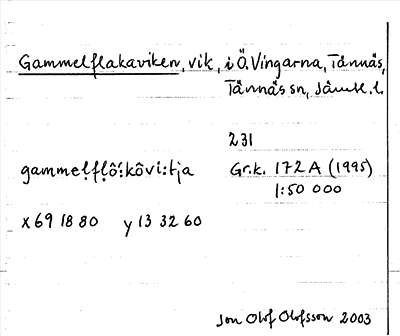 Gammelflakaviken, vik, i Ö. Vingarna, Tännäs,
Tännäs sn, Jämtl. l.
231
gammelflô:kôvi:tja Gr.k. 172 A (1995)
1:50 000
x 69 18 80 y 13 32 60
Jon Olof Olofsson 2003